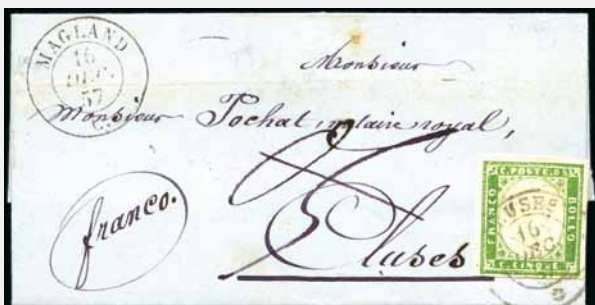 MAGLAND
16
DEC.
57
Monsieur
Monsieur Pochat, notaire royal,
Cluses
franco.
C. POSTE. 05
FRANCO
BOLLO
C. CINQUE
USES
16
DEC